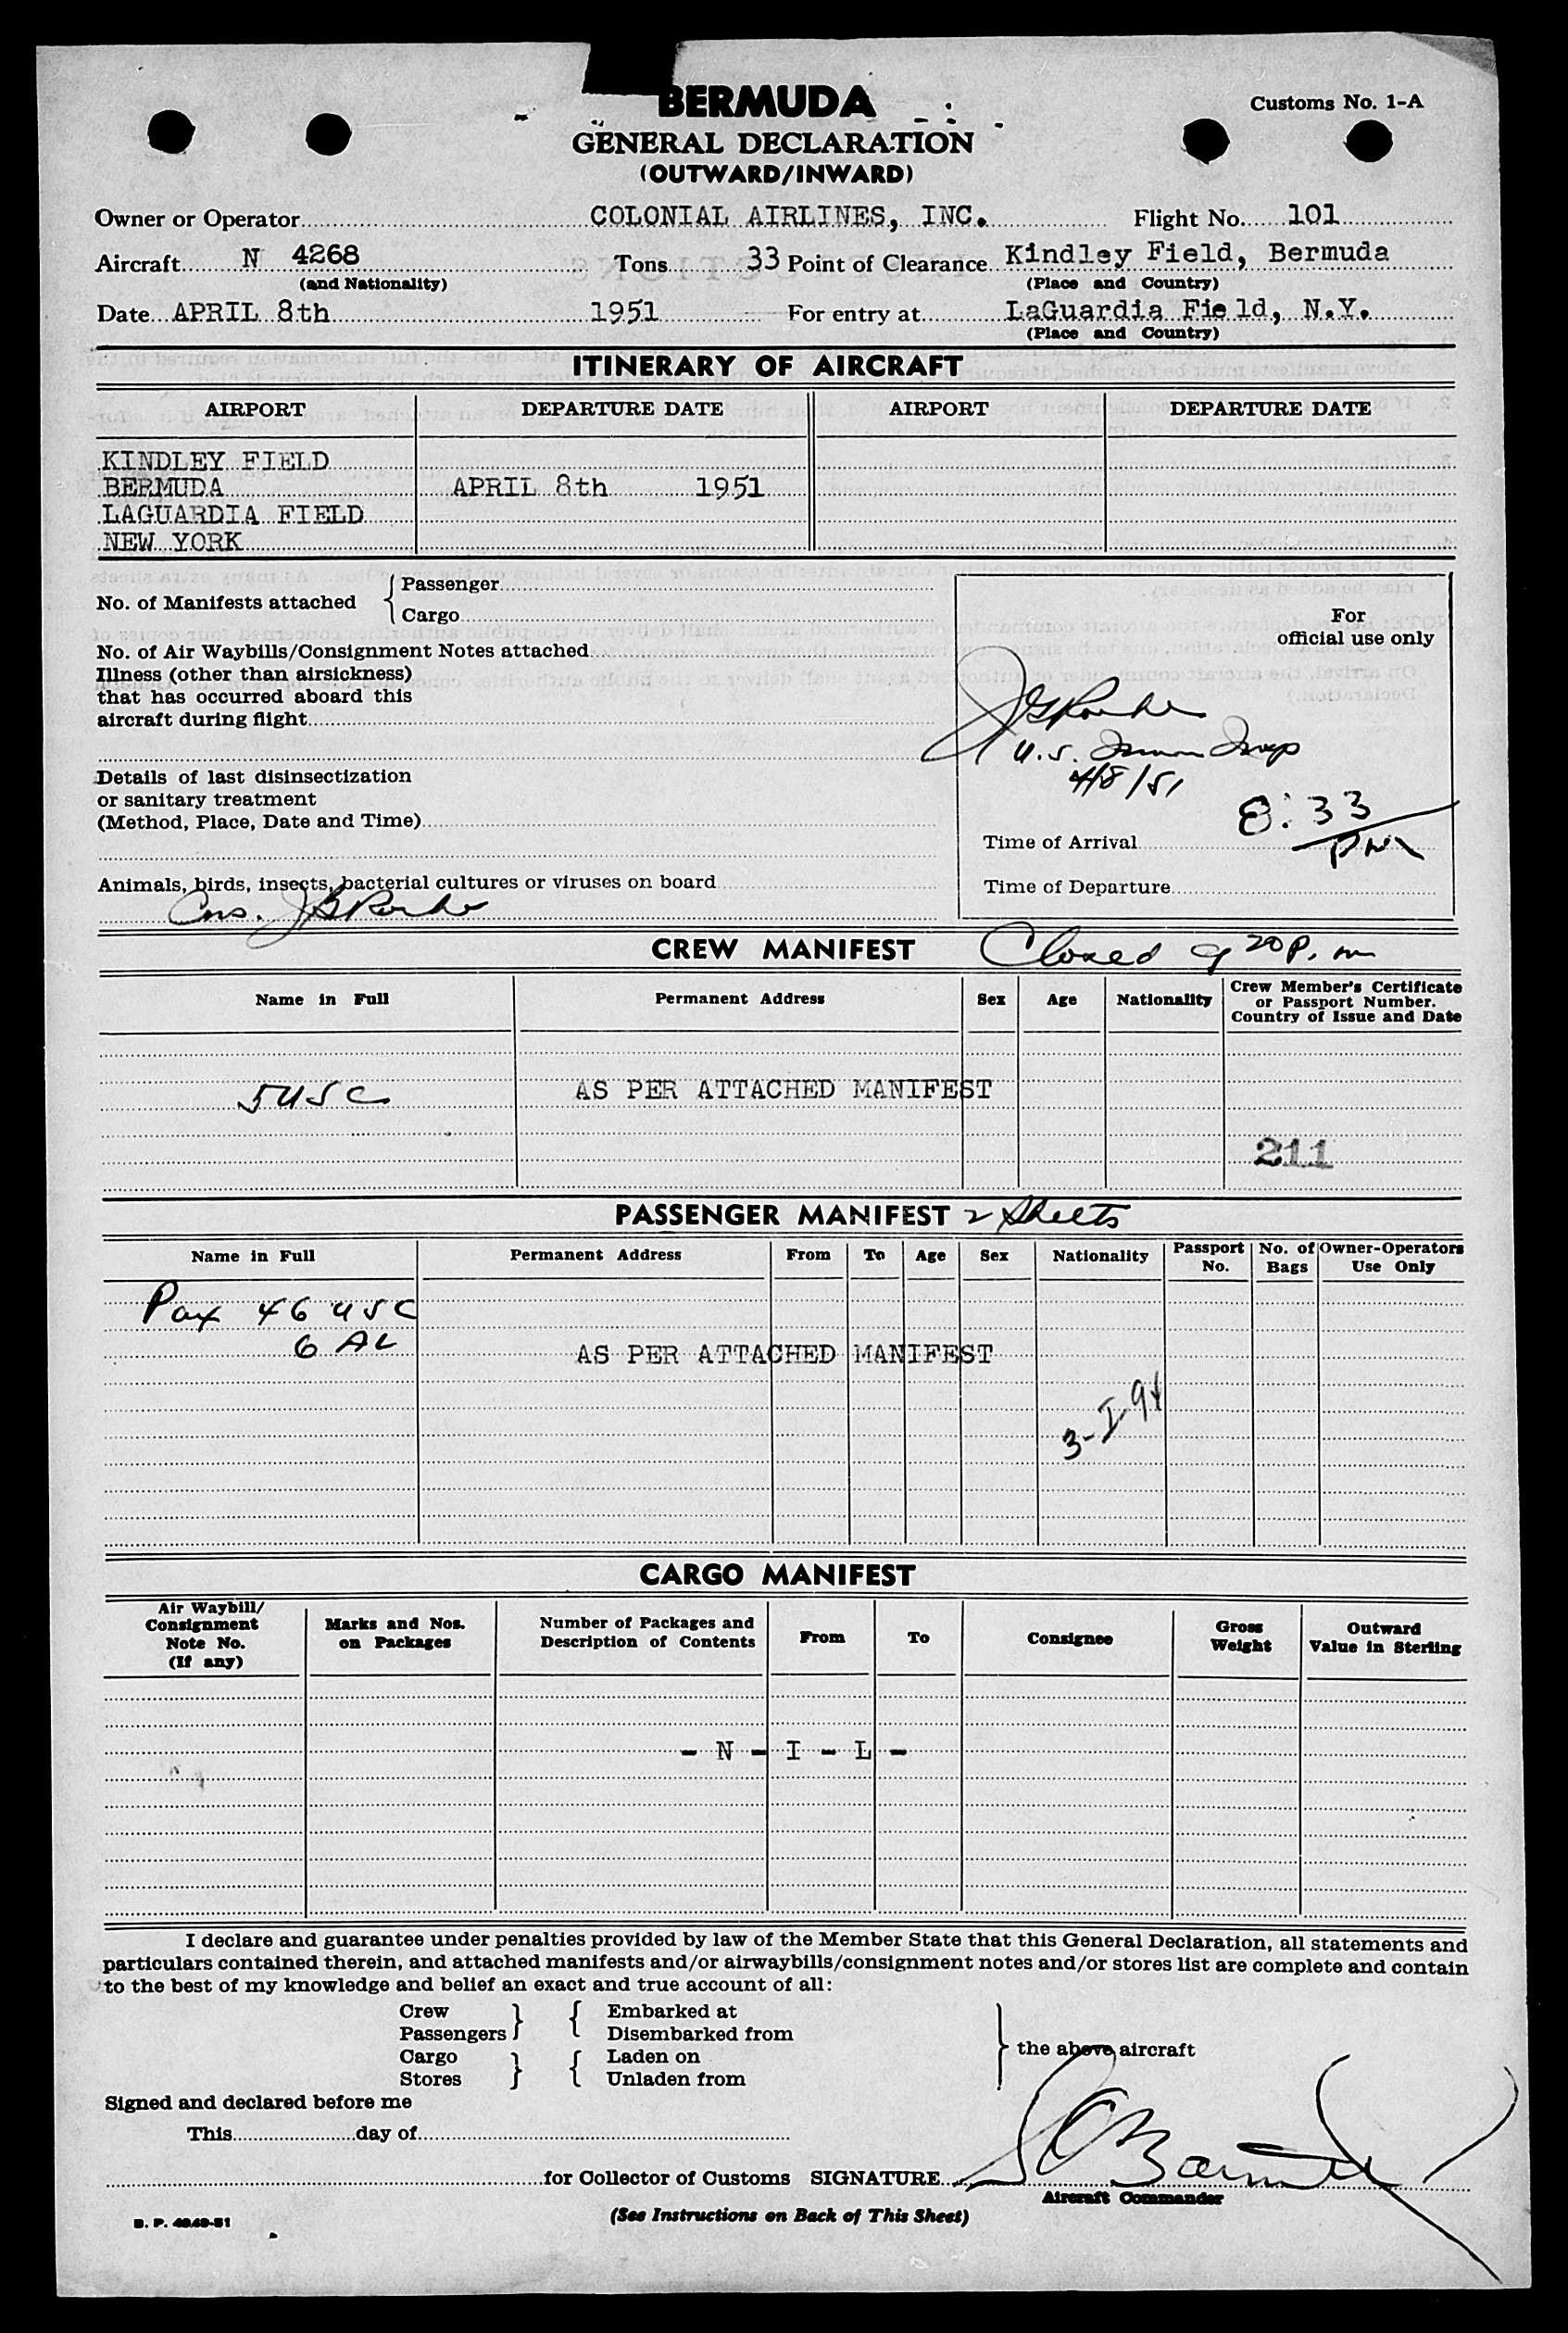 BERMUDA
Customs No. 1-A
GENERAL DECLARATION
(OUTWARD/INWARD)
Owner or Operator COLONIAL AIRLINES, INC. Flight No. 101
Aircraft N 4268 Tons 33 Point of Clearance Kindley Field, Bermuda
(and Nationality) (Place and Country)
Date APRIL 8th 1951 For entry at LaGuardia Field, N.Y.
(Place and Country)
ITINERARY OF AIRCRAFT
AIRPORT DEPARTURE DATE AIRPORT DEPARTURE DATE
KINDLEY FIELD
BERMUDA APRIL 8th 1951
LAGUARDIA FIELD
NEW YORK
No. of Manifests attached { Passenger
Cargo
For
official use only
No. of Air Waybills/Consignment Notes attached
Illness (other than airsickness)
that has occurred aboard this
aircraft during flight
U.S.
4/8/51
Details of last disinsectization
or sanitary treatment
(Method, Place, Date and Time)
8:33
PM
Time of Arrival
Animals, birds, insects, bacterial cultures or viruses on board
Time of Departure
CREW MANIFEST Closed 9 20 P.m
Name in Full Permanent Address Sex Age Nationality Crew Member's Certificate
or Passport Number.
Country of Issue and Date
5 USC AS PER ATTACHED MANIFEST
211
PASSENGER MANIFEST 2 Sheets
Name in Full Permanent Address From To Age Sex Nationality Passport No. No. of Bags Owner-Operators Use Only
Pax 46 USC
6 AL AS PER ATTACHED MANIFEST
3-I-94
CARGO MANIFEST
Air Waybill/
Consignment
Note No.
(If any)
Marks and Nos.
on Packages
Number of Packages and
Description of Contents
From To Consignee
Gross
Weight
Outward
Value in Sterling
- N - I - L -
I declare and guarantee under penalties provided by law of the Member State that this General Declaration, all statements and
particulars contained therein, and attached manifests and/or airwaybills/consignment notes and/or stores list are complete and contain
to the best of my knowledge and belief an exact and true account of all:
Crew } { Embarked at
Passengers Disembarked from
} the above aircraft
Cargo } { Laden on
Stores Unladen from
Signed and declared before me
This day of
for Collector of Customs SIGNATURE
Aircraft Commander
(See Instructions on Back of This Sheet)
B. P. 4949-51